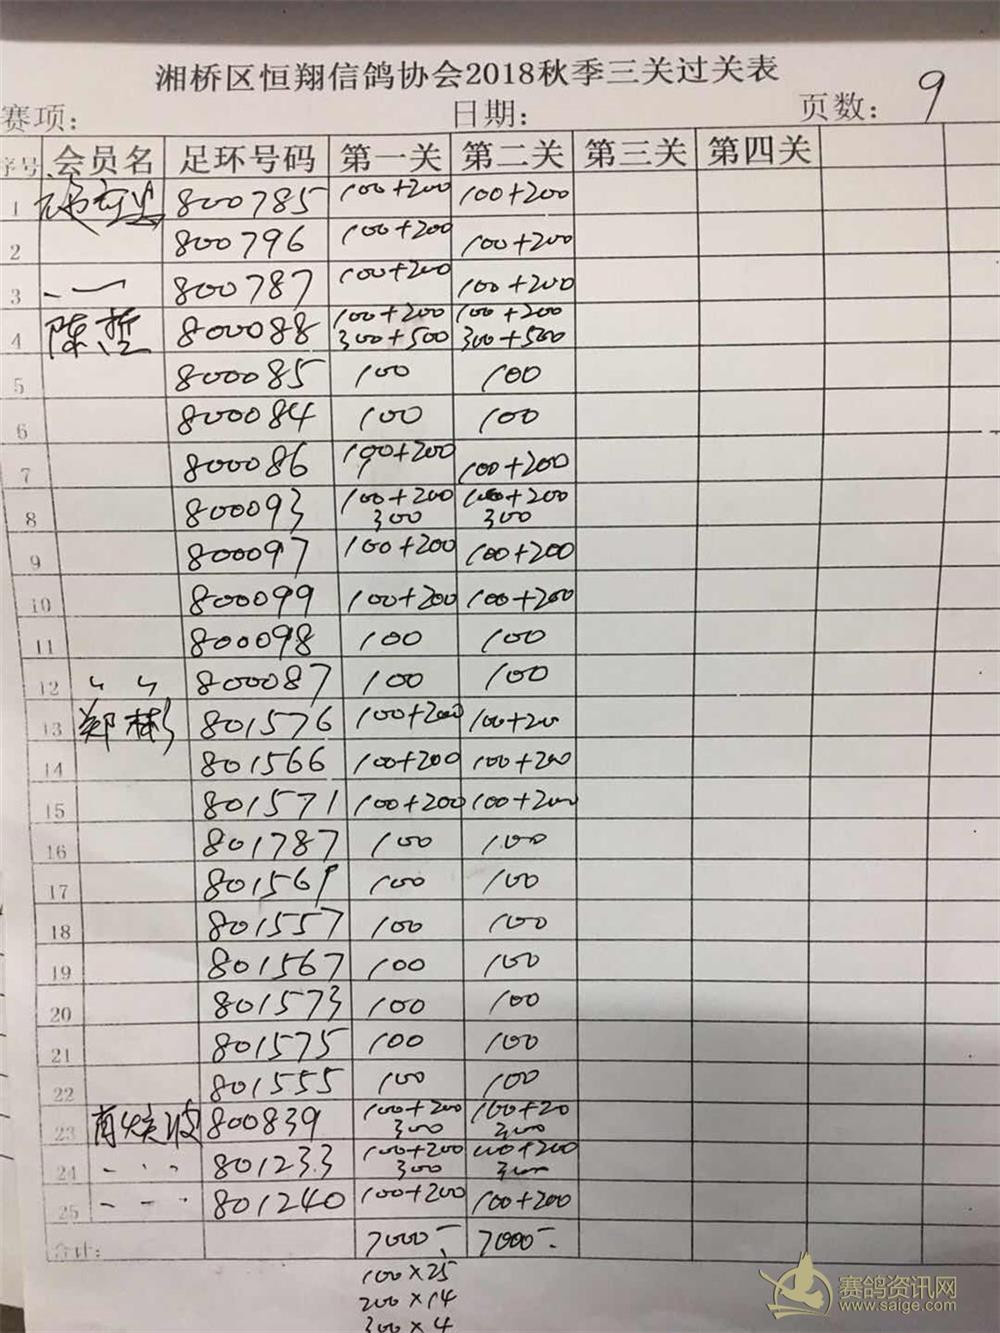 湘桥区恒翔信鸽协会2018秋季三关过关表
赛项： 日期： 页数： 9
序号 会员名 足环号码 第一关 第二关 第三关 第四关
1 800785 100+200 100+200
2 800796 100+200 100+200
3 800787 100+200 100+200
4 陈哲 800088 100+200 300+500 100+200 300+500
5 800085 100 100
6 800084 100 100
7 800086 100+200 100+200
8 800093 100+200 300 100+200 300
9 800097 100+200 100+200
10 800099 100+200 100+200
11 800098 100 100
12 800087 100 100
13 郑彬 801576 100+200 100+200
14 801566 100+200 100+200
15 801571 100+200 100+200
16 801787 100 100
17 801569 100 100
18 801557 100 100
19 801567 100 100
20 801573 100 100
21 801575 100 100
22 801555 100 100
23 肖焕波 800839 100+200 300 100+20 300
24 801233 100+200 300 100+200 300
25 801240 100+200 100+200
合计： 7000 7000
100×25
200×14
300×4
赛鸽资讯网
www.saige.com